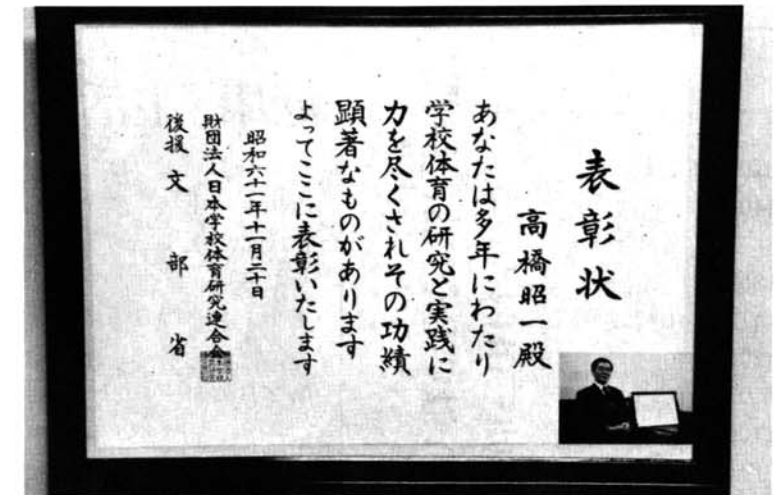 表彰状
高橋昭一殿
あなたは多年にわたり
学校体育の研究と実践に
力を尽くされその功績
顕著なものがあります
よってここに表彰いたします
昭和六十一年十一月二十日
財団法人日本学校体育研究連合会
後援文部省